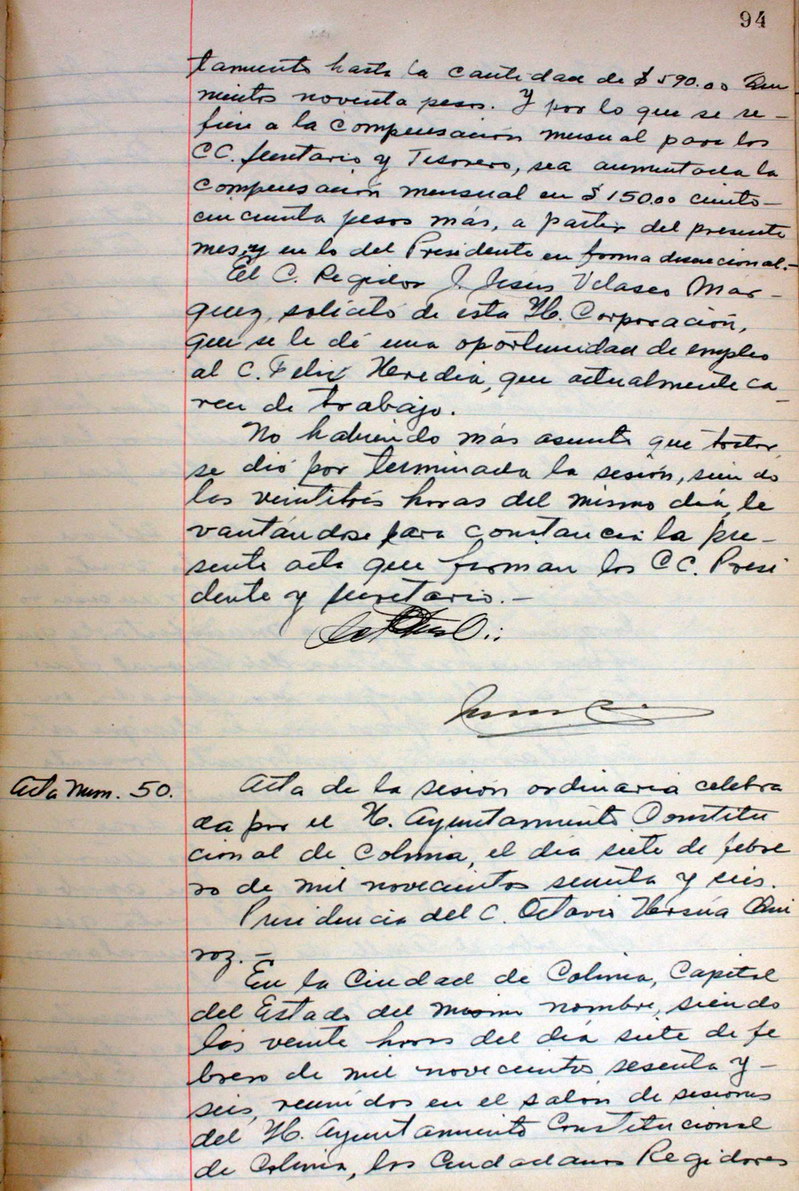 94
tamiento hasta la cantidad de $590.00 Qui
nientos noventa pesos. Y por lo que se re-
fiere a la compensación mensual para los
CC. Secretario y Tesorero, sea aumentada la
compensación mensual en $150.00 ciento-
cincuenta pesos más, a partir del presente
mes, y en lo del Presidente en forma discrecional.-
El C. Regidor J. Jesús Velasco Már-
quez, solicitó de esta H. Corporación,
que se le dé una oportunidad de empleo
al C. Felix Heredia, que actualmente ca-
rece de trabajo.
No habiendo más asunto que tratar,
se dió por terminada la sesión, siendo
las veintitrés horas del mismo día, le
vantándose para constancia la pre-
sente acta que firman los CC. Presi
dente y Secretario.-
Acta Num. 50.
Acta de la sesión ordinaria celebra
da por el H. Ayuntamiento Constitu
cional de Colima, el día siete de febre
ro de mil novecientos sesenta y seis.
Presidencia del C. Octavio Ursúa Qui
roz.-
En la Ciudad de Colima, Capital
del Estado del mismo nombre, siendo
las veinte horas del día siete de fe
brero de mil novecientos sesenta y-
seis, reunidos en el salón de sesiones
del H. Ayuntamiento Constitucional
de Colima, los Ciudadanos Regidores